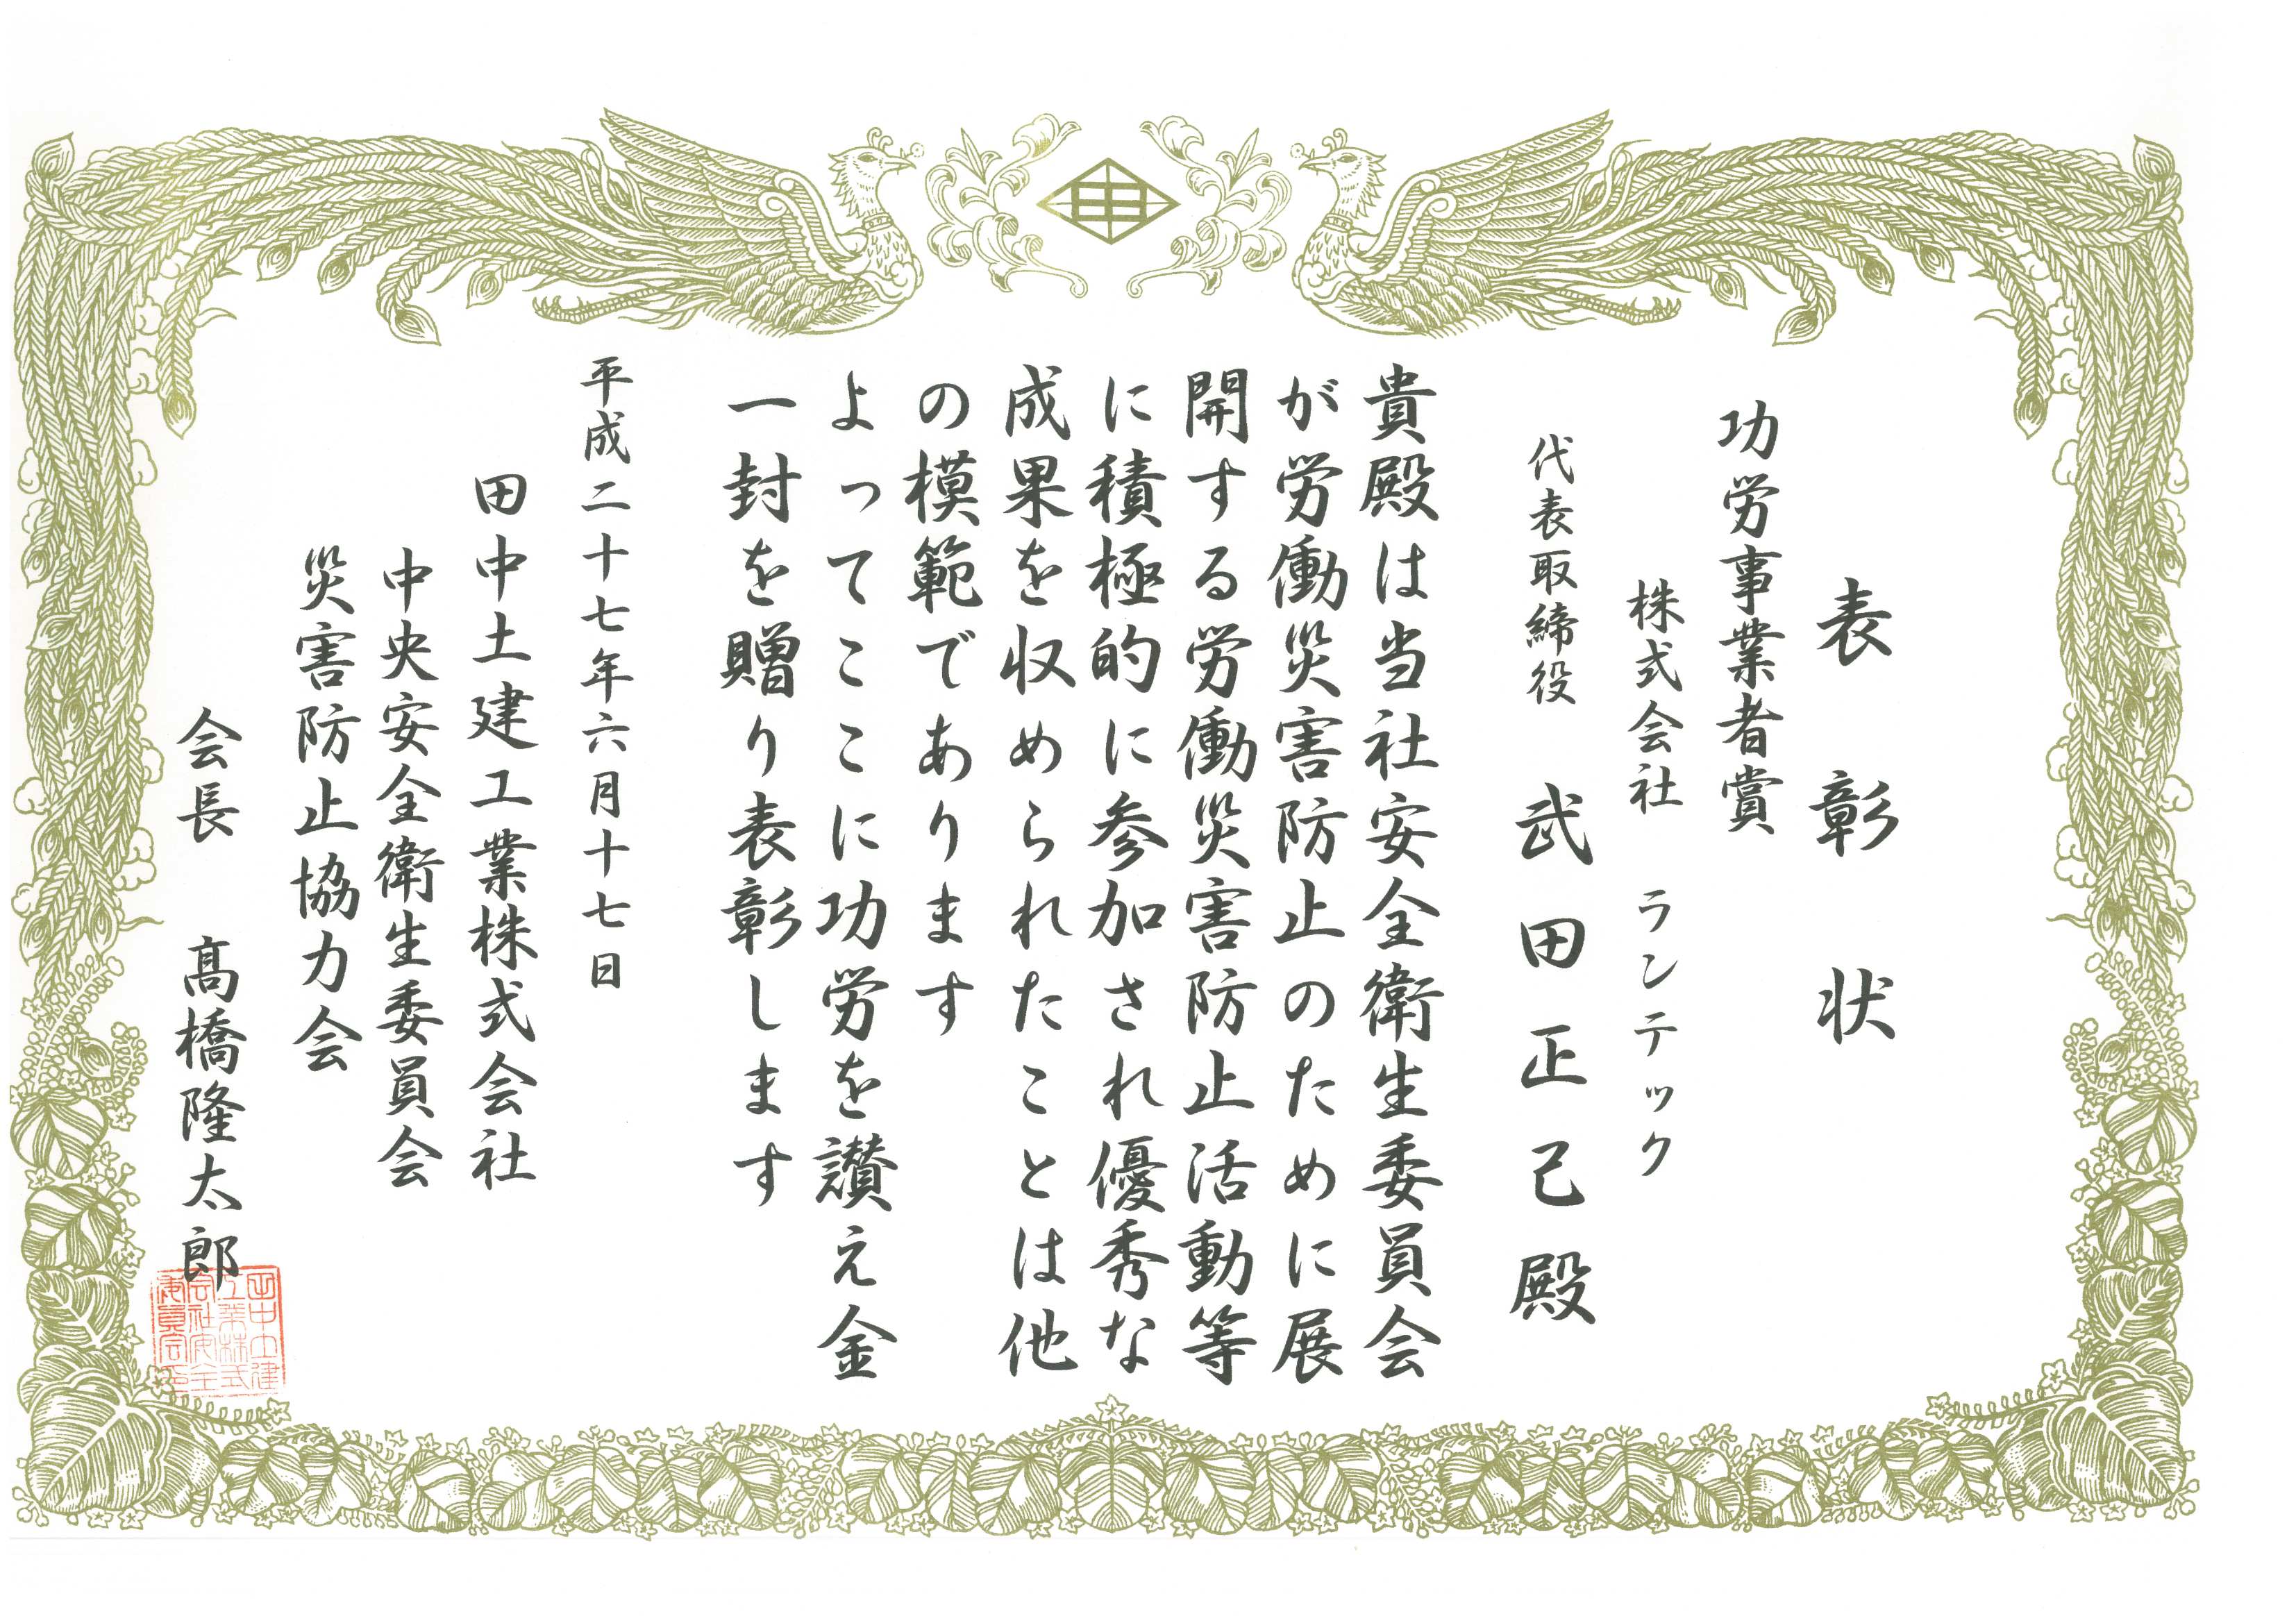 表彰状
功労事業者賞
株式会社 ランテック
代表取締役 武田正己殿
貴殿は当社安全衛生委員会
が労働災害防止のために展
開する労働災害防止活動等
に積極的に参加され優秀な
成果を収められたことは他
の模範であります
よってここに功労を讃え金
一封を贈り表彰します
平成二十七年六月十七日
田中土建工業株式会社
中央安全衛生委員会
災害防止協力会
会長 髙橋隆太郎
田中土建
工業株式
会社安全
委員会印